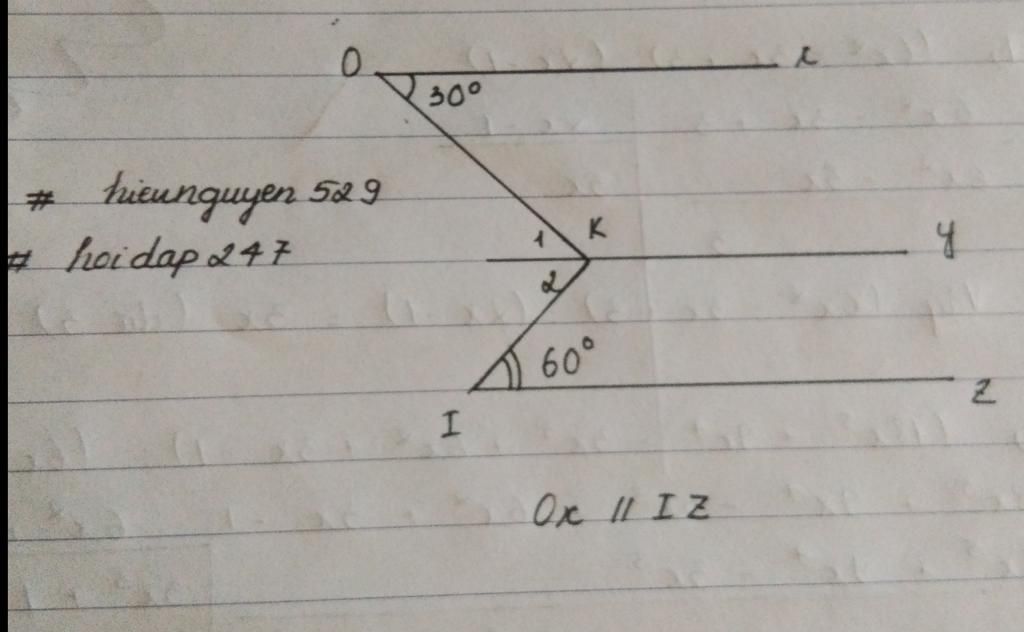 O x
30°
# hieunguyen 529
1 K y
# hoidap 247
2
60°
I z
Ox // IZ